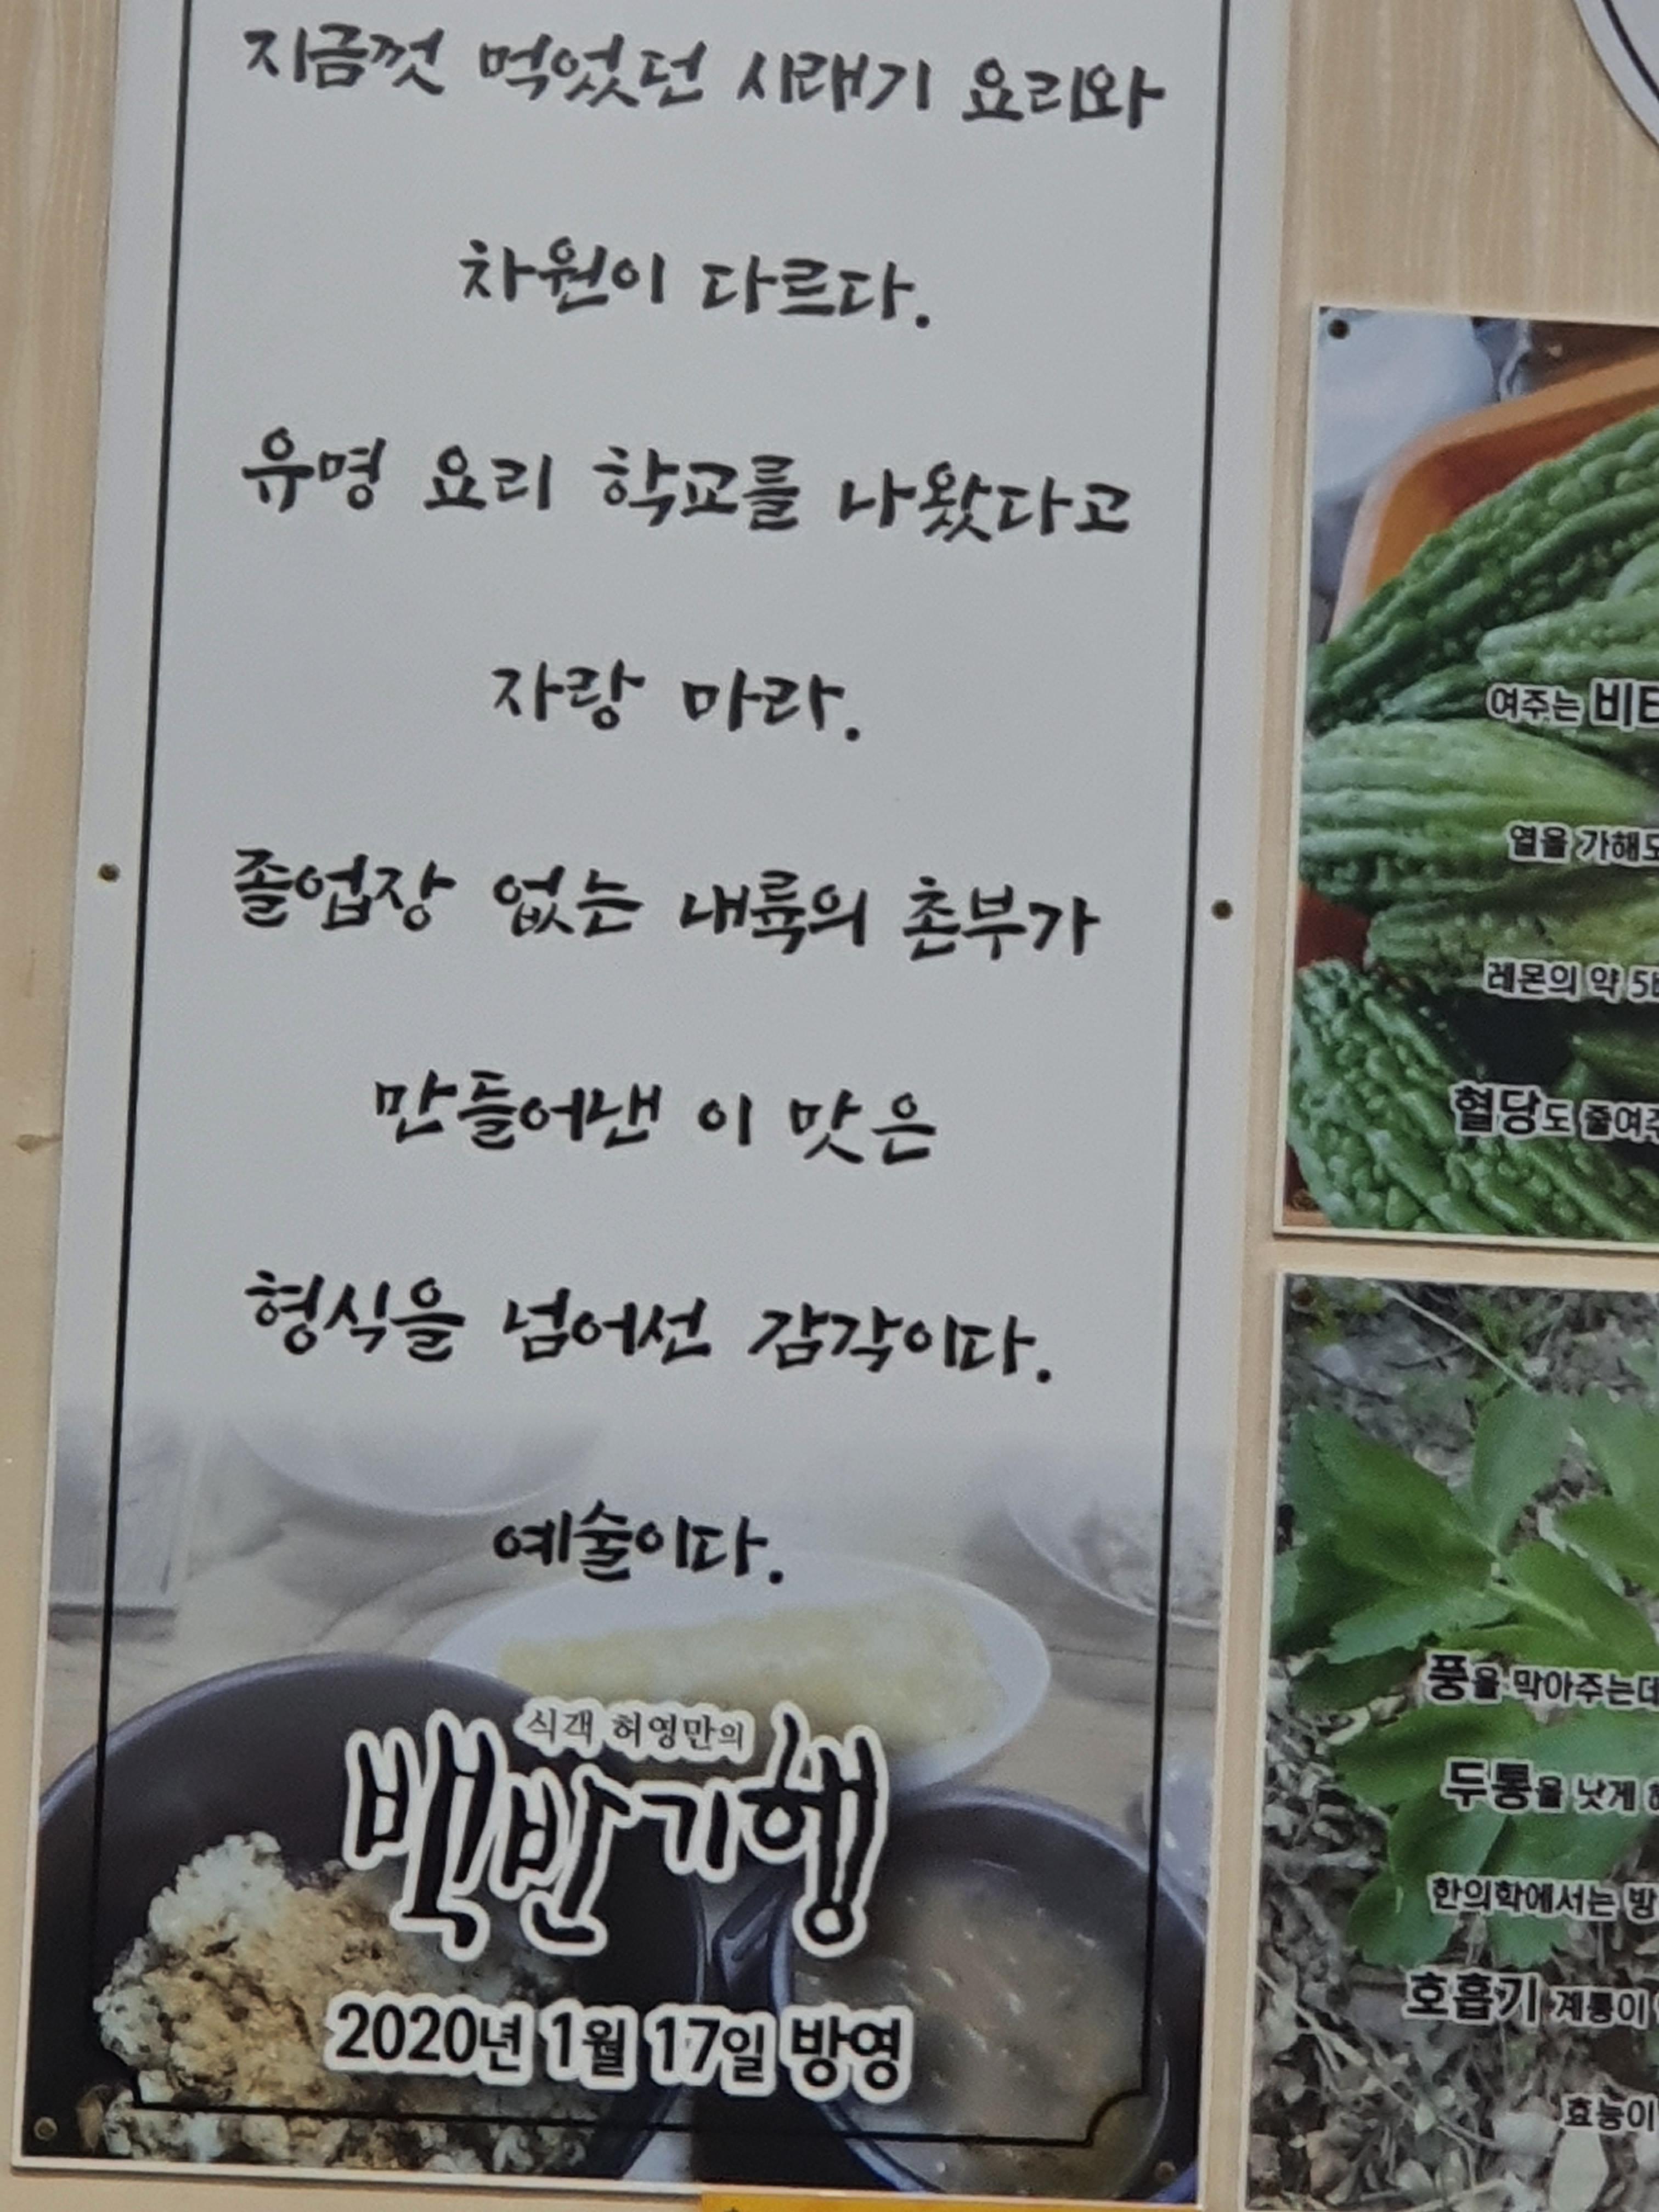 지금껏 먹었던 시래기 요리와
차원이 다르다.
유명 요리 학교를 나왔다고
자랑 마라.
졸업장 없는 내륙의 촌부가
만들어낸 이 맛은
형식을 넘어선 감각이다.
예술이다.
식객 허영만의
백반기행
2020년 1월 17일 방영
여주는 비타
열을 가해도
레몬의 약 5배
혈당도 줄여주
풍을 막아주는데
두통을 낫게
한의학에서는 방
호흡기 계통이
효능이